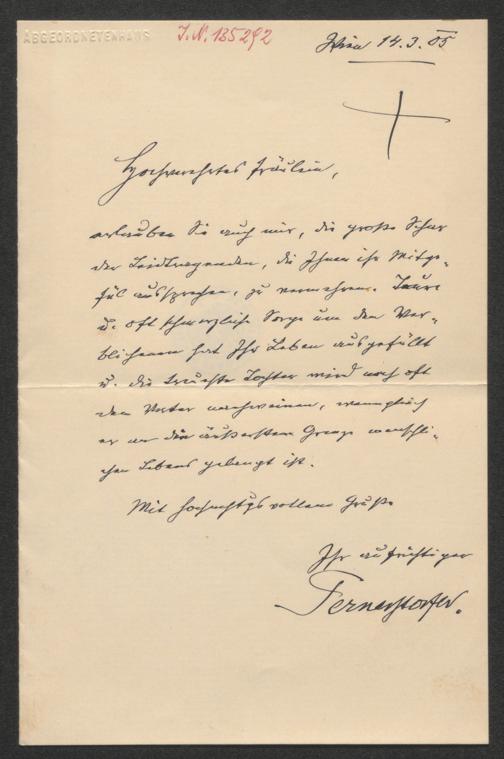 ABGEORDNETENHAUS
I.N. 135292
Wien 14.3.05
Hochverehrtes Fräulein,
erlauben Sie auch mir, die große Schar
der Leidtragenden, die Ihnen ihr Mitge-
fül aussprechen, zu vermehren. Teure
u. oft schmerzliche Sorge um den Ver-
blichenen hat Ihr Leben ausgefüllt
u. die treueste Tochter wird noch oft
dem Vater nachweinen, wenngleich
er an die äußersten Grenze menschli-
chen Lebens gelangt ist.
Mit hochachtgsvollem Gruße
Ihr aufrichtiger
Pernerstorfer.